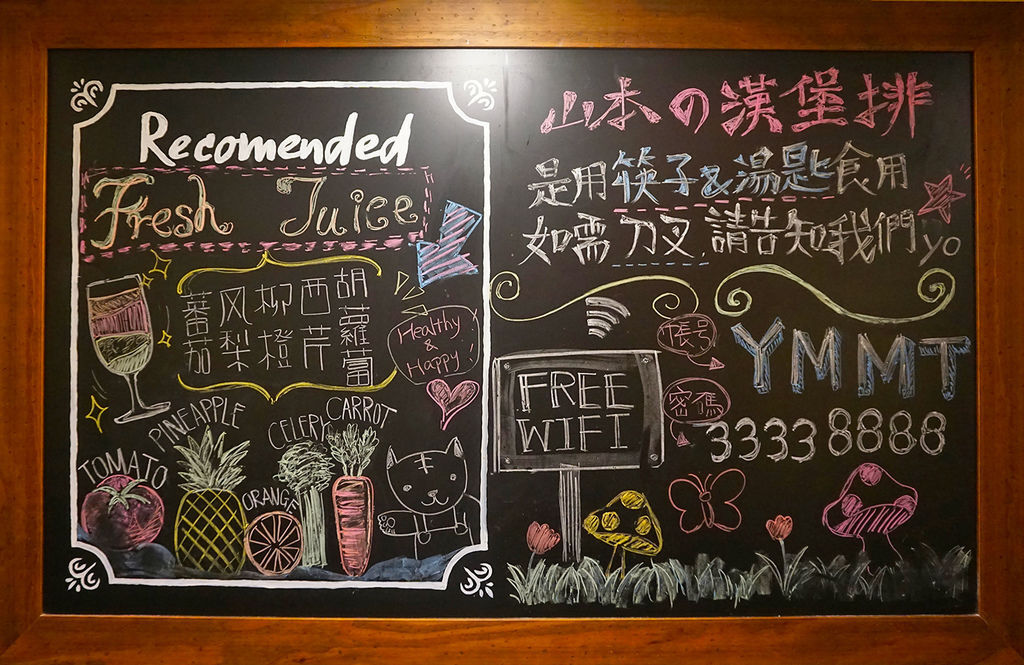 Recomended
Fresh Juice
胡蘿蔔
西芹
柳橙
风梨
蕃茄
Healthy
&
Happy!
TOMATO
PINEAPPLE
ORANGE
CELERY
CARROT
山本の漢堡排
是用筷子&湯匙食用
如需刀叉,請告知我們yo
FREE
WIFI
帳号
YMMT
密碼
33338888